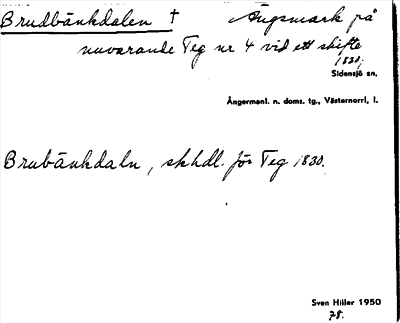 Brudbänkdalen † Ängsmark på
nuvarande Teg nr 4 vid ett skifte
1830;
Sidensjö sn,
Ångermanl. n. doms. tg., Västernorrl. l.
Brubänkdaln, skhdl. för Teg 1830.
Sven Hiller 1950
78.